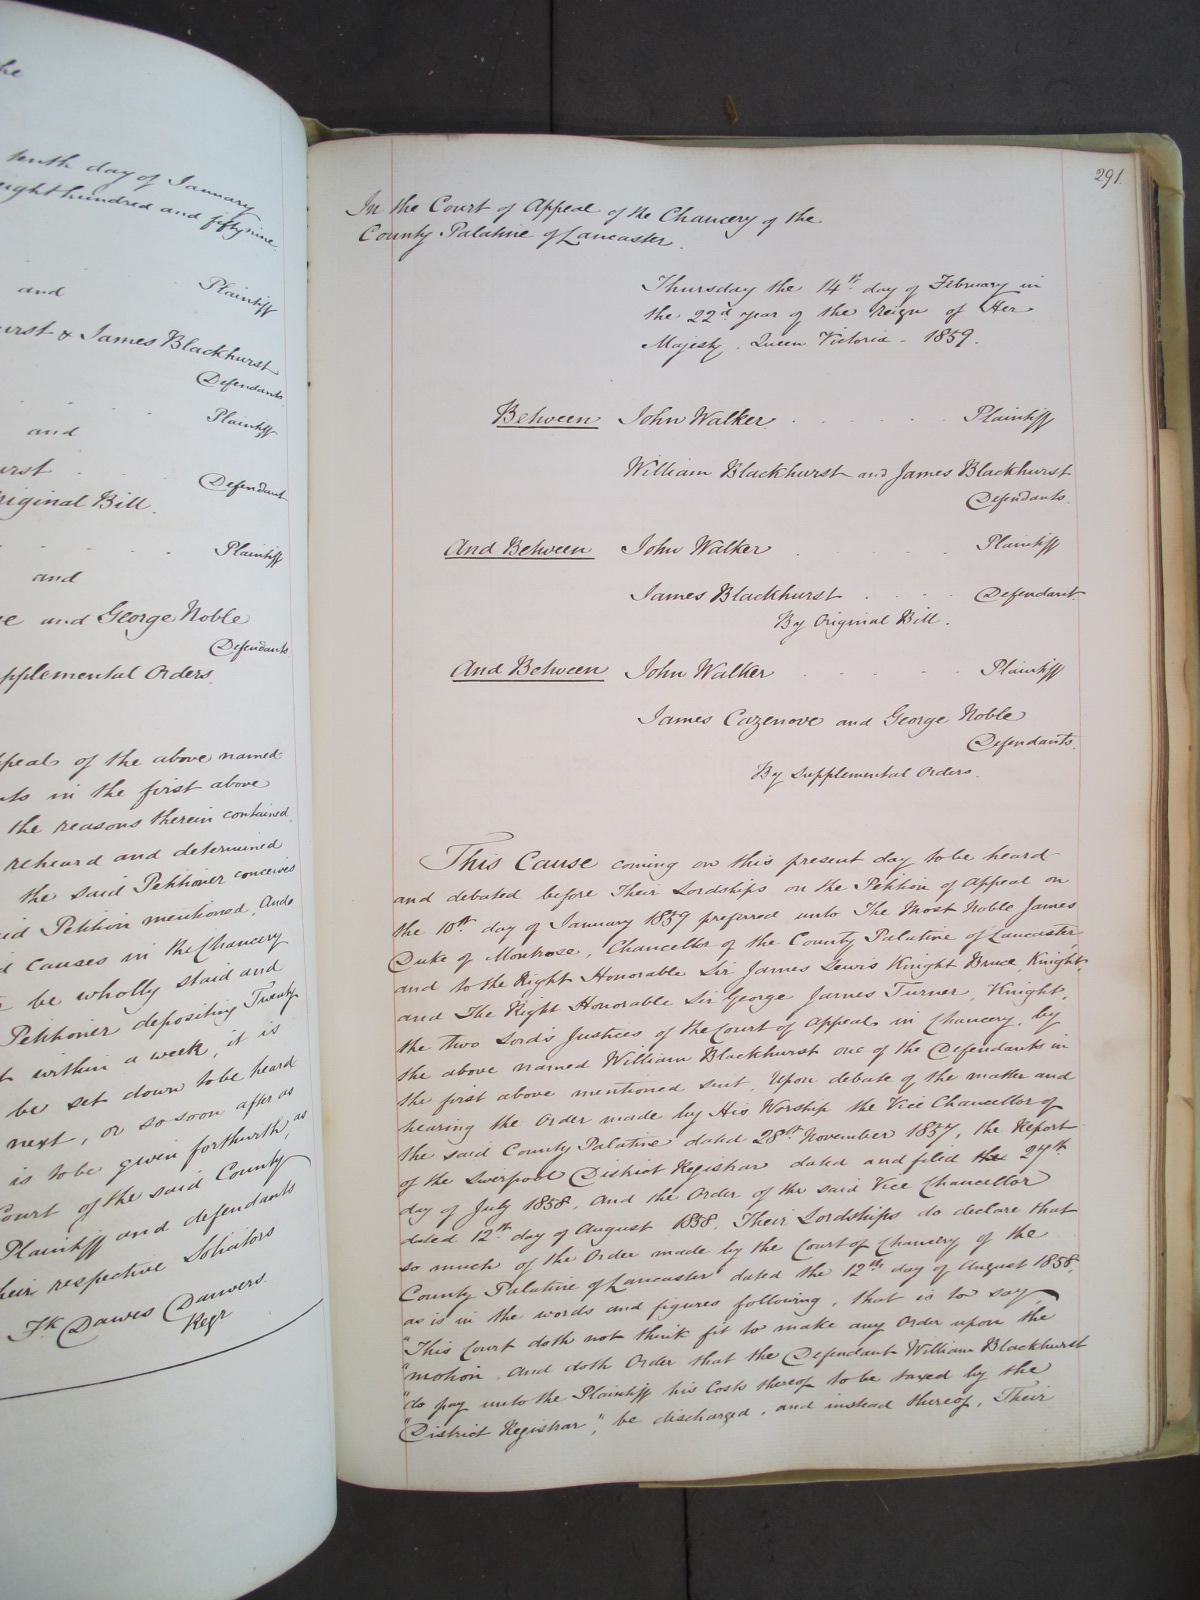 he
tenth day of January
eighthundred and fiftynine
Plaintiff
and
urst & James Blackhurst
Defendants
Plaintiff
and
urst
Defendant
riginal Bill.
Plaintiff
and
ve and George Noble
Defendants
pplemental Orders.
ppeal of the above named
ts in the first above
the reasons therein contained
reheard and determined
the said Petitioner conceives
aid Petition mentioned, And
d causes in the Chancery
be wholly staid and
Petitioner depositing Twenty
t within a week, it is
be set down to be heard
next, or so soon after as
is to be given forthwith, as
Court of the said County
Plaintiff and defendants
heir respective Solicitors
Fk Dawes Danvers.
Regr
291.
In the Court of Appeal of the Chancery of the
County Palatine of Lancaster.
Thursday the 14th day of February in
the 22d year of the Reign of Her
Majesty Queen Victoria - 1859.
Between John Walker . . . . . Plaintiff
William Blackhurst and James Blackhurst
Defendants.
And Between John Walker . . . . Plaintiff
James Blackhurst . . . Defendant
By Original Bill.
And Between John Walker . . . . Plaintiff
James Cazenove and George Noble
Defendants.
By Supplemental Orders.
This Cause coming on this present day to be heard
and debated before Their Lordships on the Petition of Appeal on
the 10th day of January 1859 preferred unto The Most Noble James
Duke of Montrose, Chancellor of the County Palatine of Lancaster,
and to the Right Honorable Sir James Lewis Knight Bruce, Knight,
and The Right Honorable Sir George James Turner, Knight,
the two Lords Justices of the Court of Appeal in Chancery, by
the above named William Blackhurst one of the Defendants in
the first above mentioned suit, Upon debate of the matter and
hearing the Order made by His Worship the Vice Chancellor of
the said County Palatine dated 28th November 1857, the Report
of the Liverpool District Registrar dated and filed the 27th
day of July 1858, and the Order of the said Vice Chancellor
dated 12th day of August 1858, Their Lordships do declare that
so much of the Order made by the Court of Chancery of the
County Palatine of Lancaster dated the 12th day of August 1858,
as is in the words and figures following, that is to say,
"This Court doth not think fit to make any Order upon the
"motion, and doth Order that the Defendant William Blackhurst
"do pay unto the Plaintiff his Costs thereof to be taxed by the
"District Registrar", be discharged, and instead thereof, Their